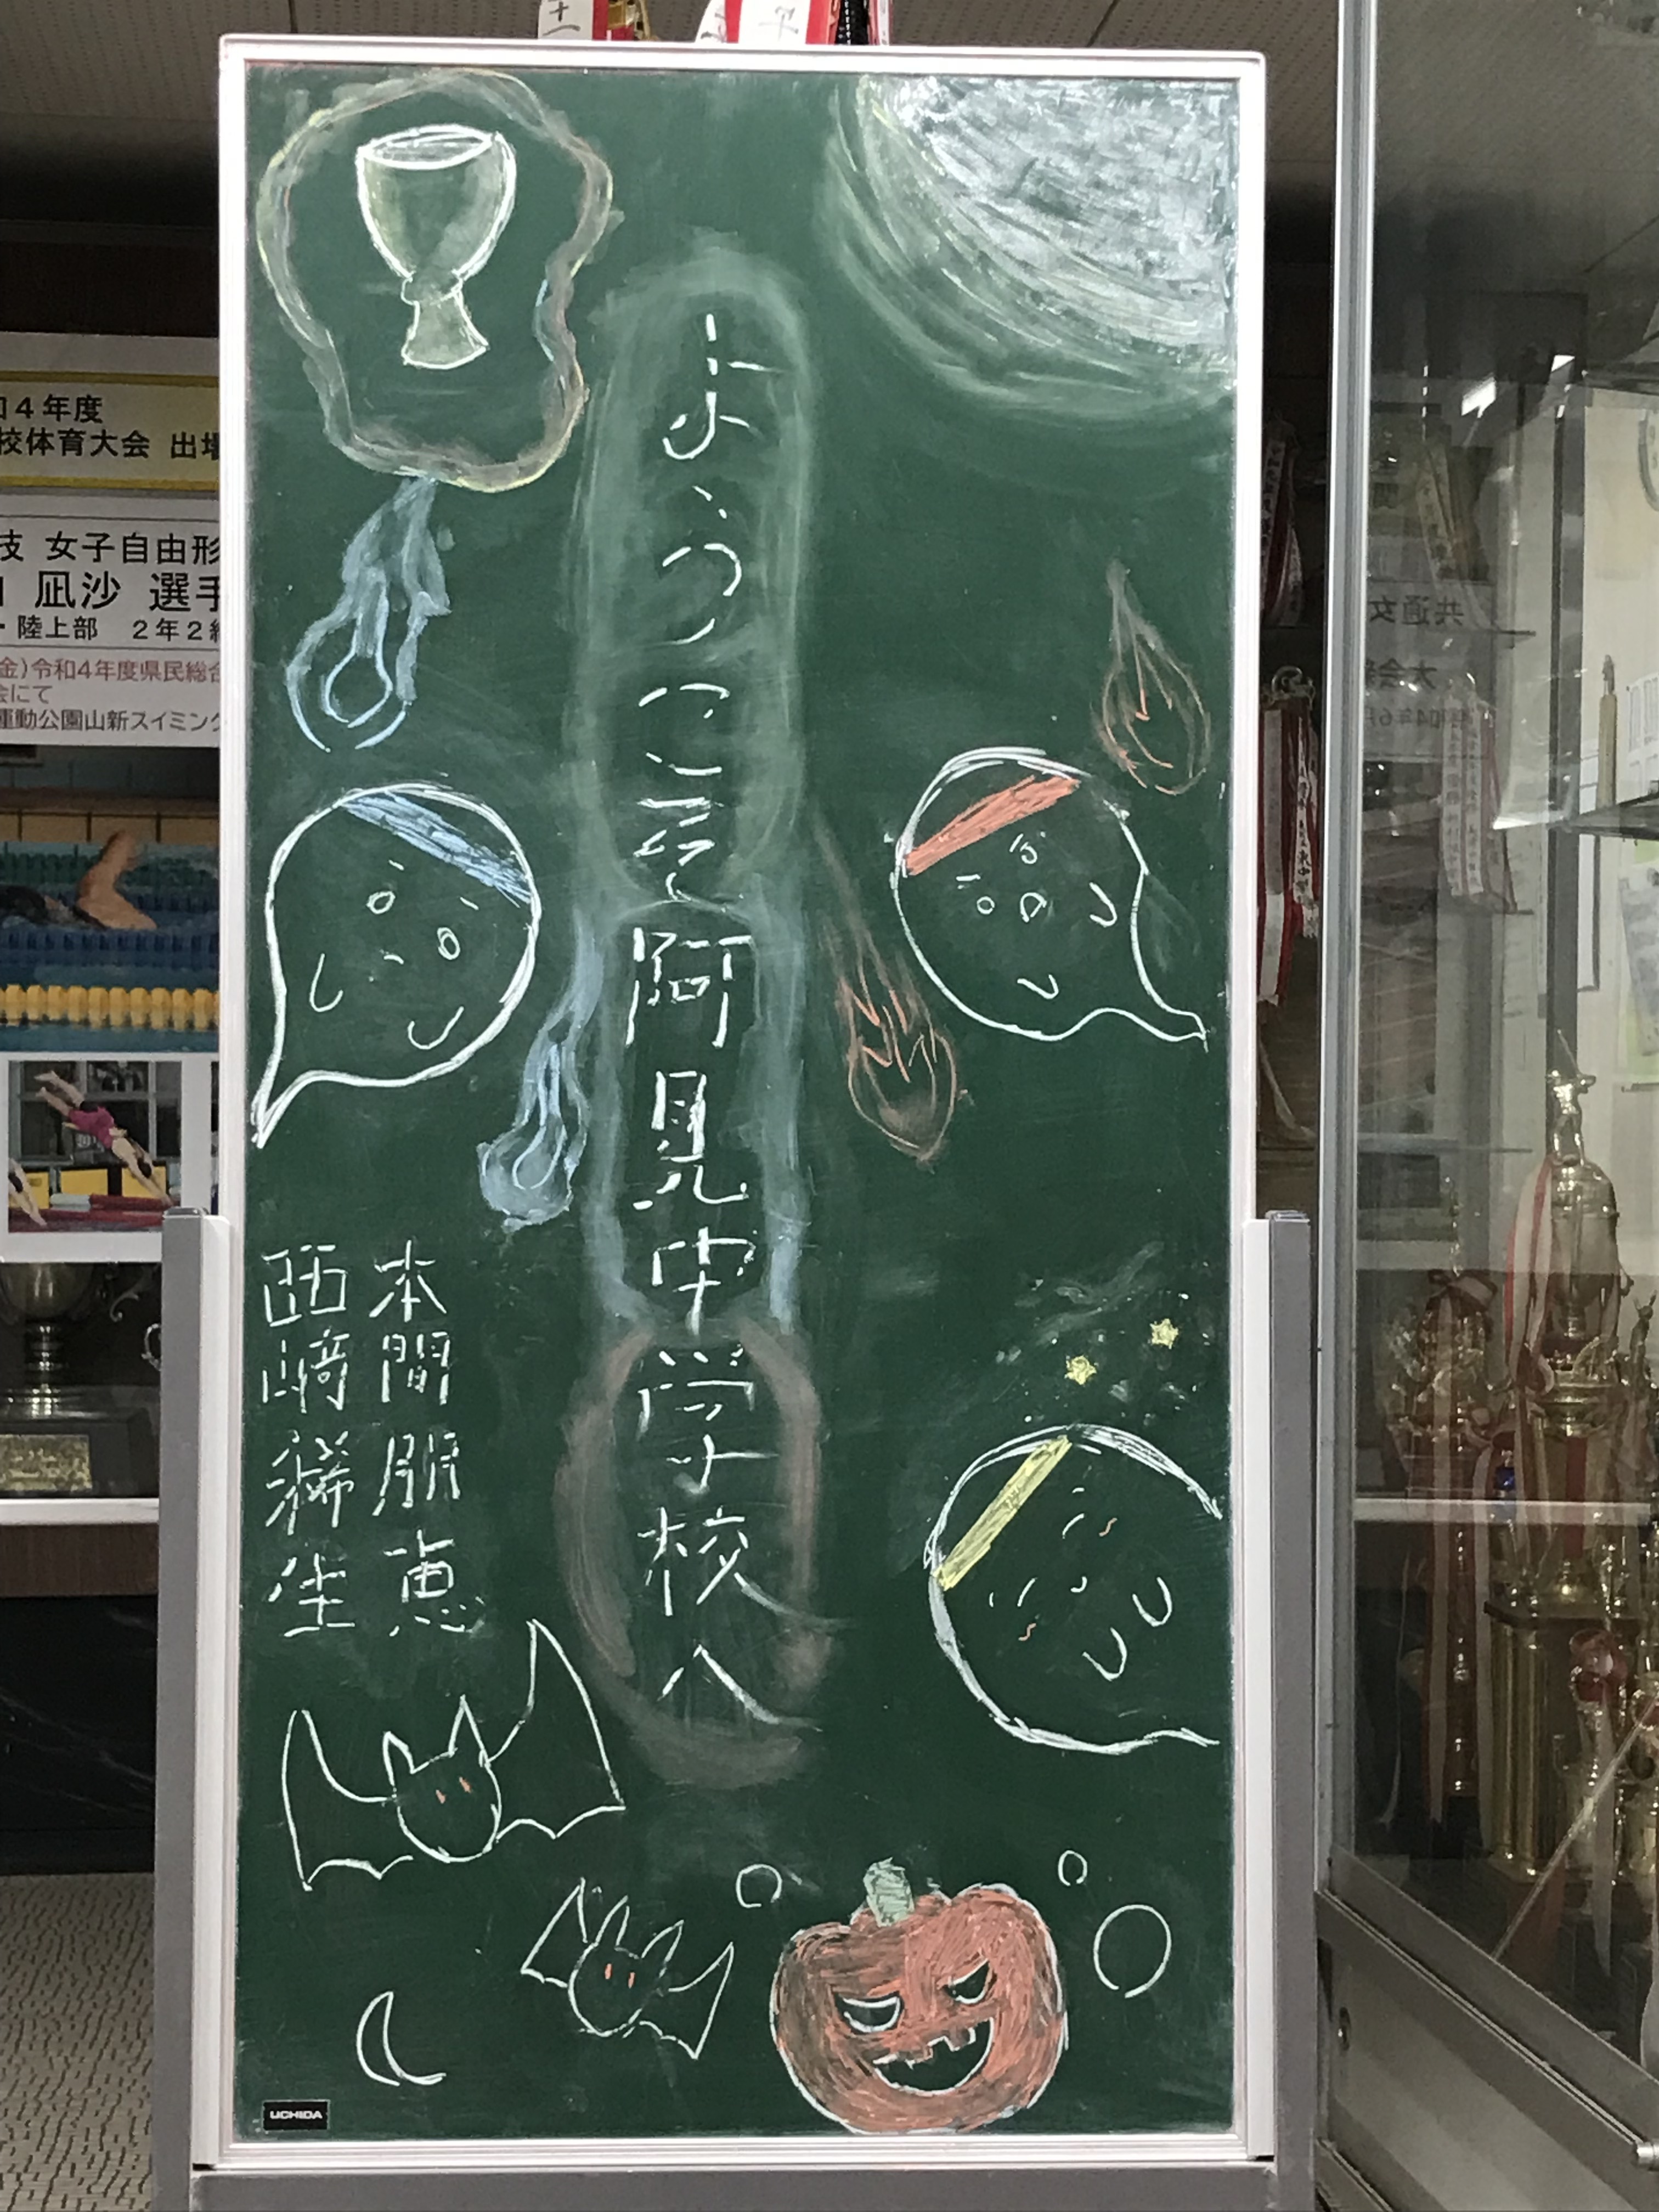 ようこそ阿見中学校へ
本間朋恵
西崎稀生
UCHIDA
4年度
校体育大会 出場
技 女子自由形
凪沙 選手
・陸上部 2年2組
(金)令和4年度県民総合
会にて
運動公園山新スイミング
共通女
大会